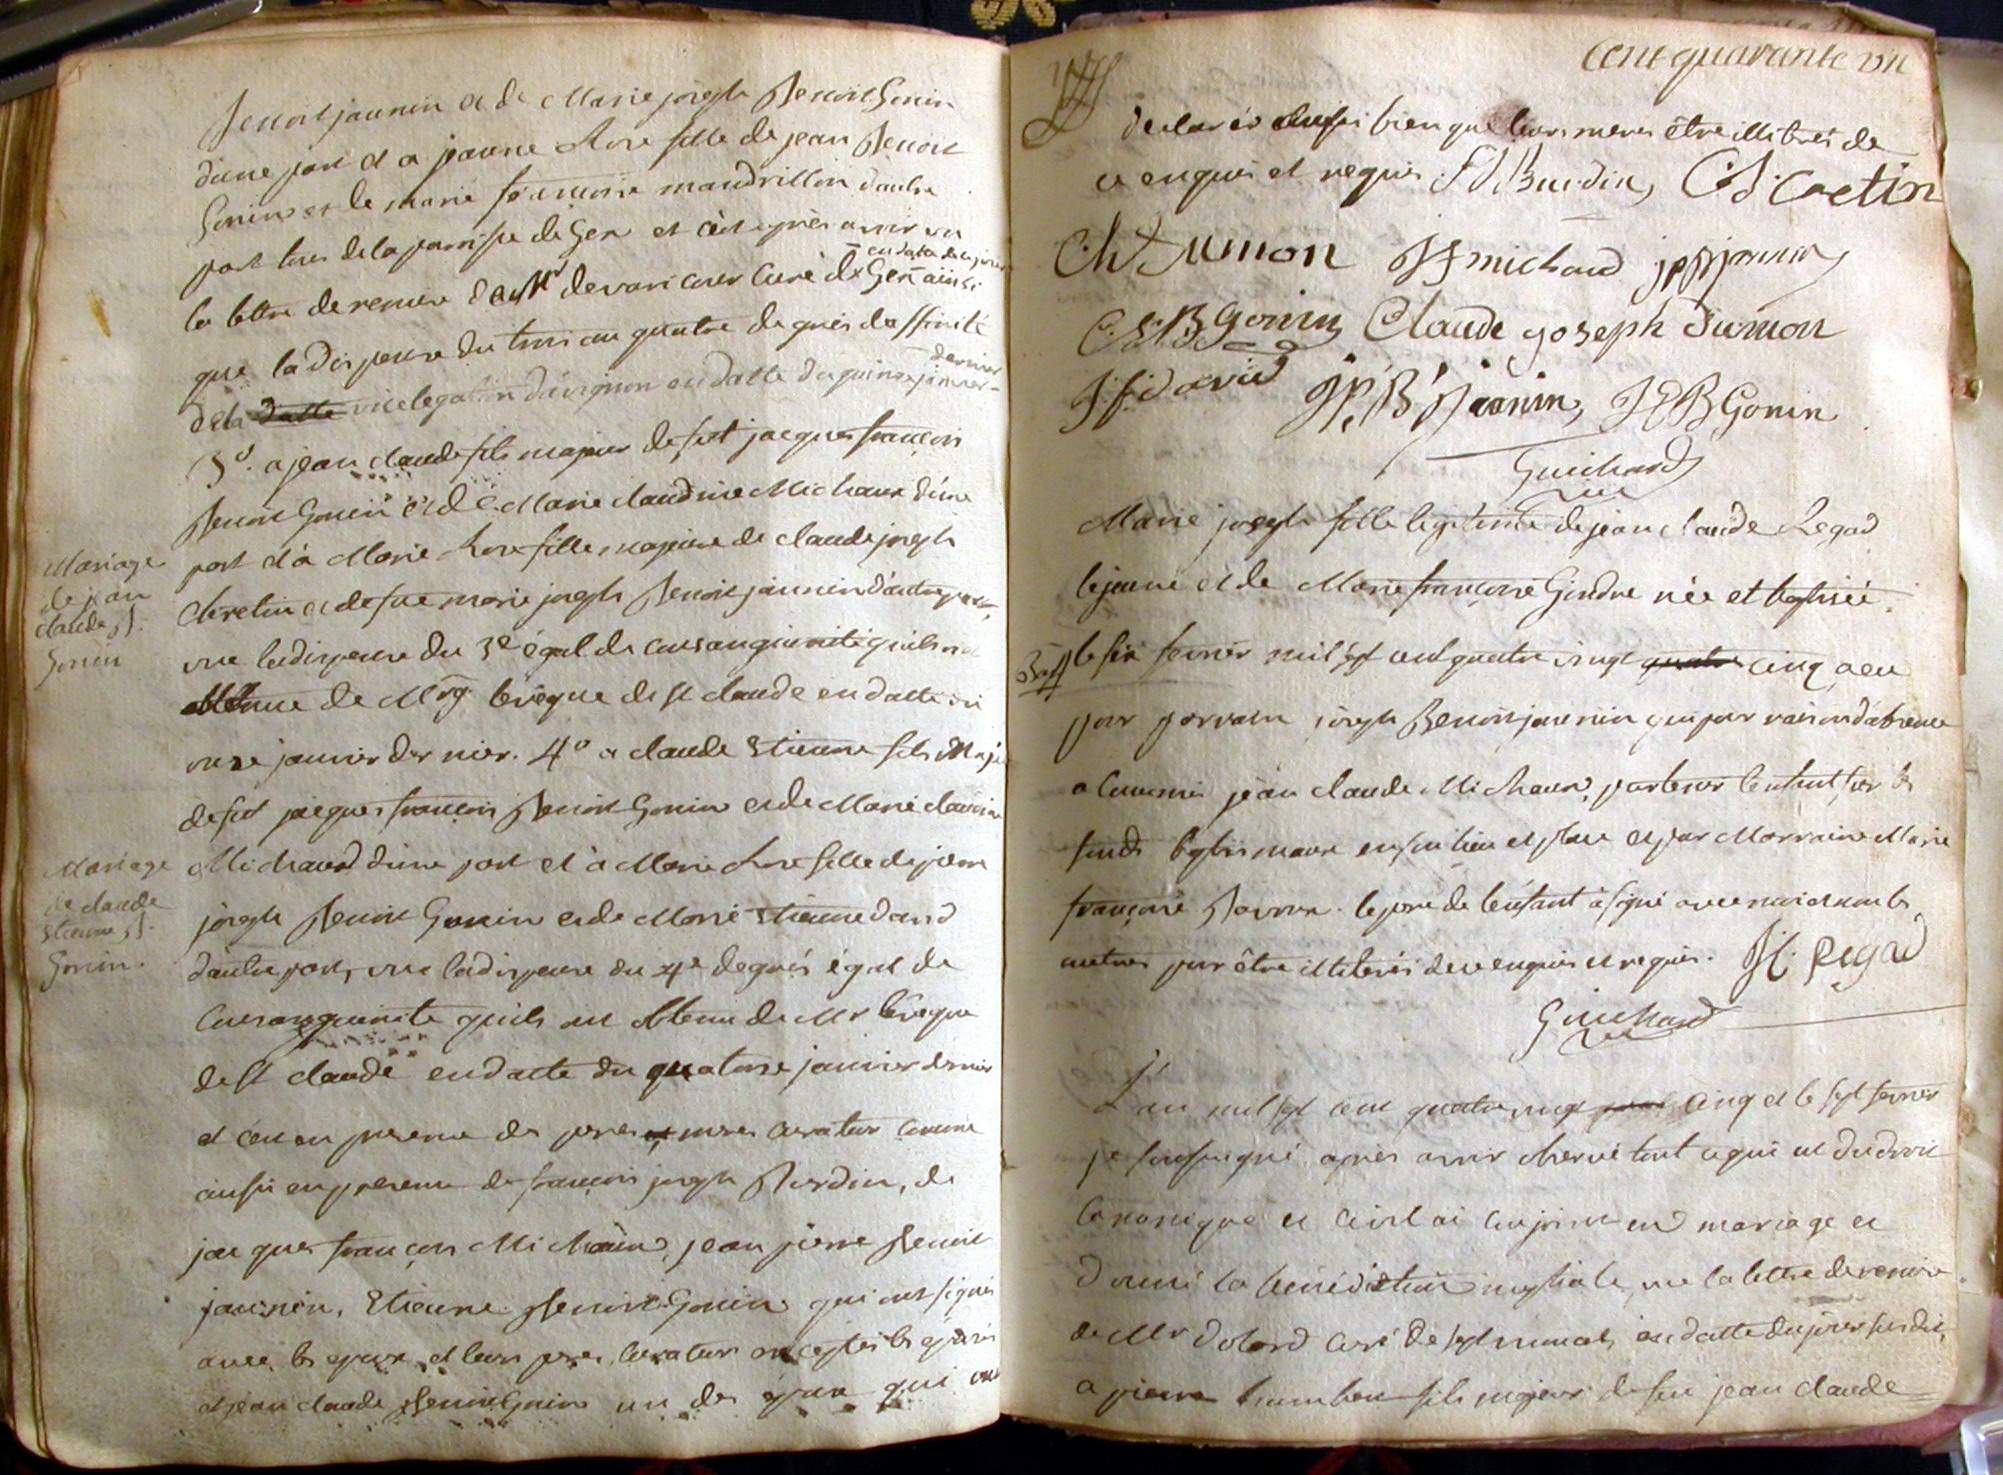 Benoit jaunin et de Marie joseph Benoit Gonin
dune part et a jeanne Rose fille de jean Benoit
Gonin et de marie francoise mandrillon dautre
part tous de la paroisse de Gex et cèt après avoir vu
la lettre de remise de Mr devaricour curé de Gex en date de ce jour ainsi
que la dispense du trois au quatre degrés daffinité
de la vicelegation davignon en datte du quinze janvier dernier
3º. a jean claude fils majeur de feut jacques françois
Benoit Gonin et de Marie claudine Michaux d'une
part et à Marie Rose fille majeure de claude joseph
chretin et de fue marie joseph Benoit jaunin d'autre part,
vue la dispense du 3e égal de consanguinité quils ont
obtenue de Mgr lévêque de st claude en datte du
onze janvier dernier. 4º a claude Etienne fils Majeur
de fut jacques françois Benoit Gonin et de Marie claudine
Michaud d'une part et à Marie Rose fille de pierre
joseph Benoit Gonin et de Marie Etienne David
d'autre part, vue la dispense du 4e degrés égal de
Consanguinité quils ont obtenue de Mr lévêque
de st claude en datte du quatorze janvier dernier
et cèt en presence des peres et meres curateur comme
aussi en presence de françois joseph Burdin, de
jacques françois Michaux, jean pierre Benoit
jaunin, Etienne Benoit Gonin qui ont signés
avec les epoux et leurs peres, curateur exceptés les épouses
et jean claude Benoit Gonin un des époux qui ont
Mariage
de jean
claude B.
Gonin
Mariage
de claude
Etienne B.
Gonin.
Cent quarante un
declarés aussi bien que leurs meres être illitrés de
ce enquis et requis. F J Burdin, C J Cretin
Ch Dumon JF michaud jp B jaunin
C E B gonin Claude joseph Dumon
J f david JP, B Jaunin, J E B Gonin
Guichard
Marie joseph fille legitime de jean claude Regad
lejeune et de Marie françoise Gindre née et baptisée
le six fevrier mil sept cent quatre vingt cinq a eu
pour parrain joseph Benoit jaunin qui pour raison d'absence
a commis jean claude Michaux, pour tenir l'enfant sur les
fonds baptismaux en son lieu et place et pour Marraine Marie
françoise. le pere de l'enfant à signé avec moi et non les
autres pour être illiterés de ce enquis et requis. J C Regad
Guichard
L'an mil sept cent quatre vingt cinq et le sept fevrier
je soussigné après avoir observé tout ce qui est du droit
canonique et civil ai conjoint en mariage et
donné la bénédiction nuptiale, vue la lettre de remise
de Mr Dolard curé de septmoncel en datte du jour susdit,
a pierre fils majeur de feu jean claude